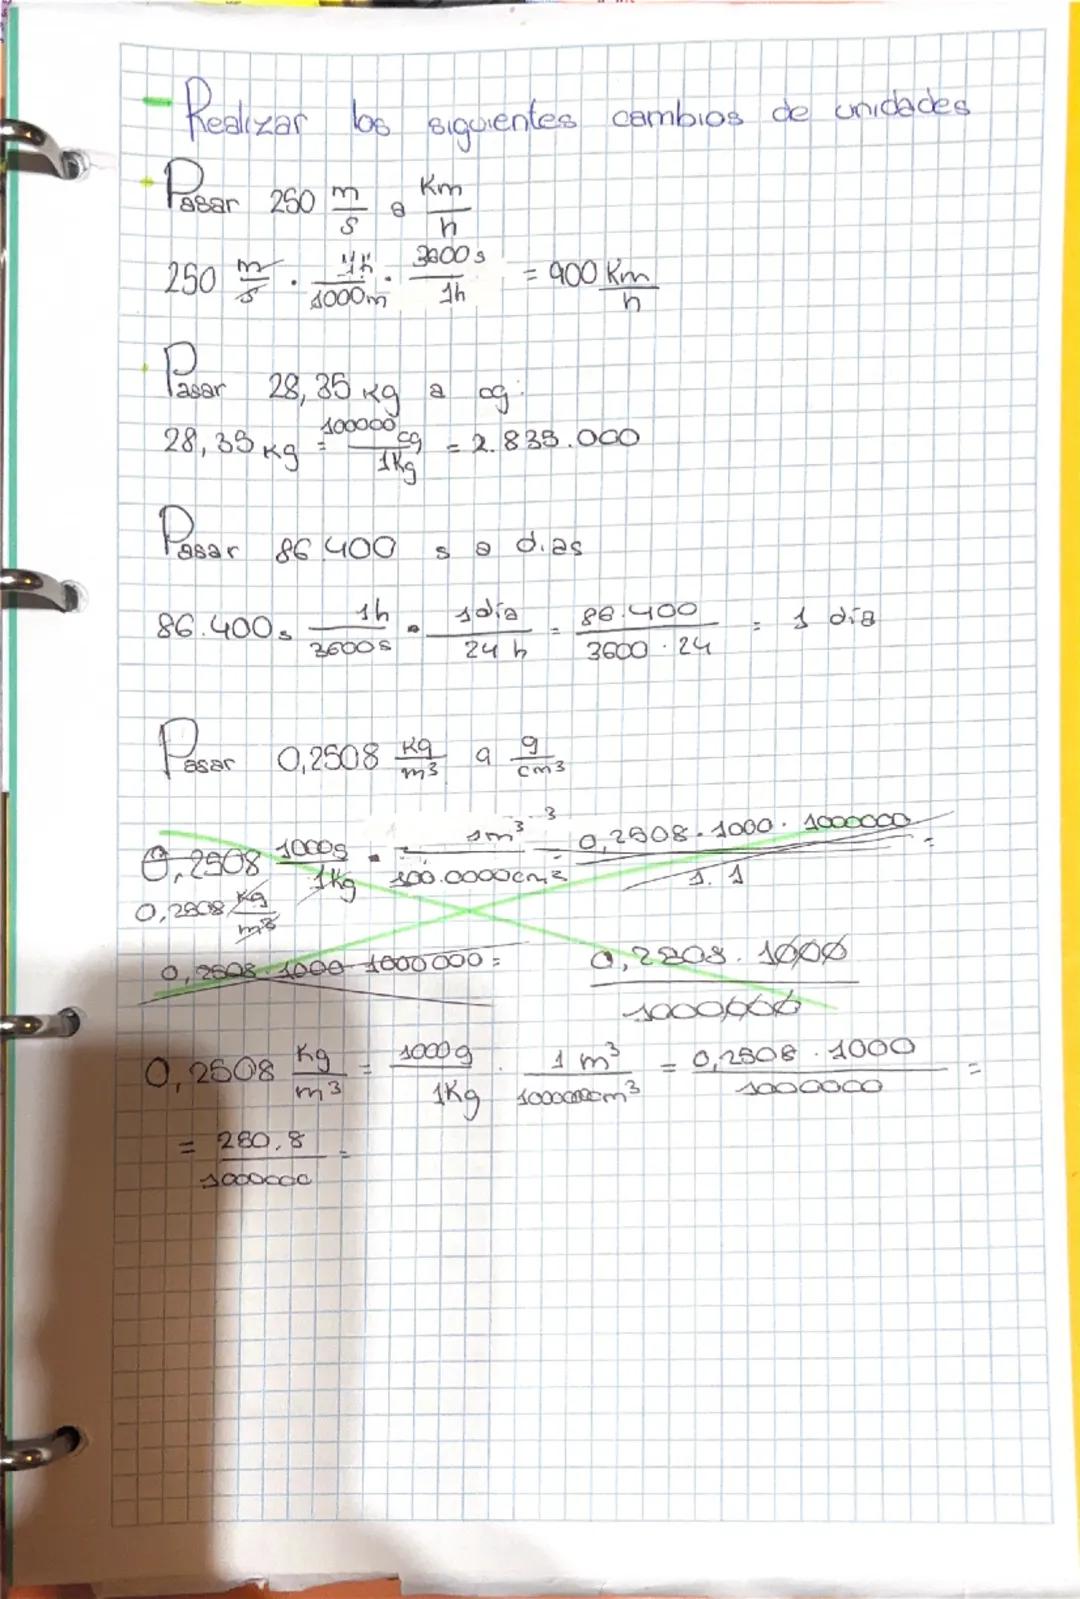 - Realizar los siguientes cambios de unidades
- Pasar 250 m/s a Km/h
250 m/s · 1h/1000m · 3600s/1h = 900 Km/h
· Pasar 28,35 kg a cg:
28,35 kg = 100000 cg/1Kg = 2.835.000
Pasar 86.400 s a dias
86.400s 1h/3600s · 1día/24 h = 86.400/3600 · 24 = 1 día
Pasar 0,2508 Kg/m³ a g/cm³
0,2508 1000g/1Kg · 1m³/100.0000cm³ = 0,2508 · 1000 · 1000000/1 · 1 =
0,2508 Kg/m³
0,2508 · 1000 · 1000000 = 0,2508 · 1000/1000000
0,2508 Kg/m³ = 1000g/1Kg · 1 m³/1000000cm³ = 0,2508 · 1000/1000000 =
= 250,8/1000000 =